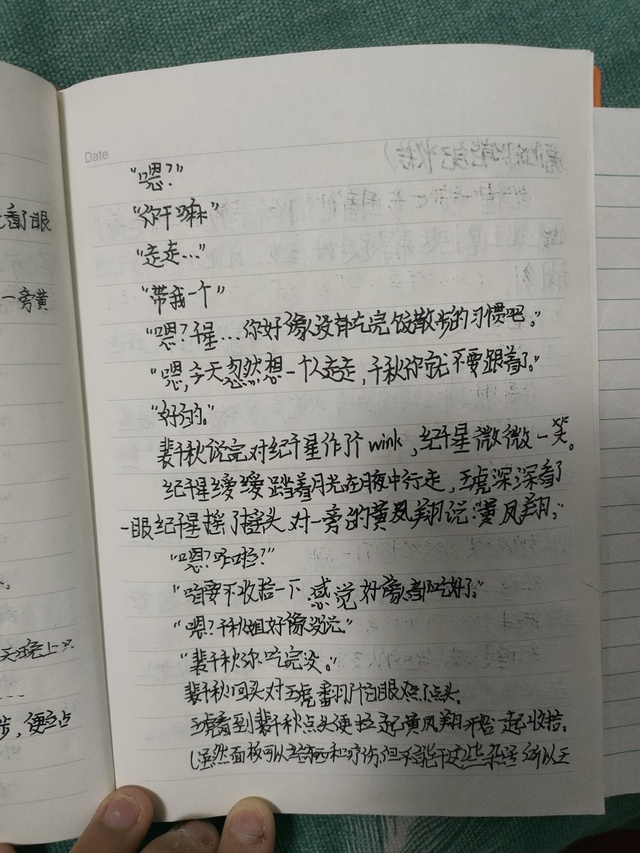 Date
"嗯?"
"你干嘛"
"走走..."
"带我一个"
"嗯?千星...你好像没有吃完饭散步的习惯吧。"
"嗯,今天忽然想一个人走走,千秋你就不要跟着了。"
"好的。"
裴千秋说完对纪千星作了个wink,纪千星微微一笑。
纪千星缓缓踏着月光在夜中行走,王虎深深看了
一眼纪千星摇了摇头对一旁的黄凤翔说:"黄凤翔,"
"嗯?咋啦?"
"咱要不收拾一下感觉好像都吃好了。"
"嗯?千秋姐好像没说"
"裴千秋你吃完没。"
裴千秋回头对王虎翻了个白眼点点头。
王虎看到裴千秋点头便拉起黄凤翔开始一起收拾。
(虽然面板可以 和疗伤,但不能干这些杂活 所以王
看了眼
一旁黄
天晚上只
步,便